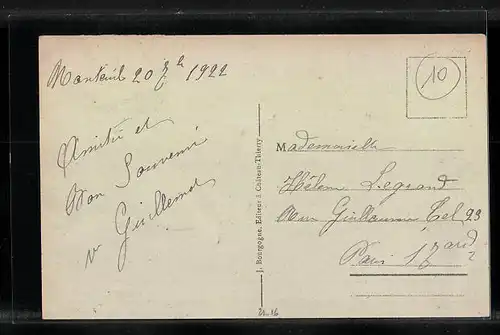 Nanteuil 20 7bre 1922
Amitié et
Bon Souvenir
v Guillemot
J. Bourgogne, Editeur à Château-Thierry
10
Mademoiselle
Hélène Legrand
Rue Guillaume Tel 23
Paris 17 ard